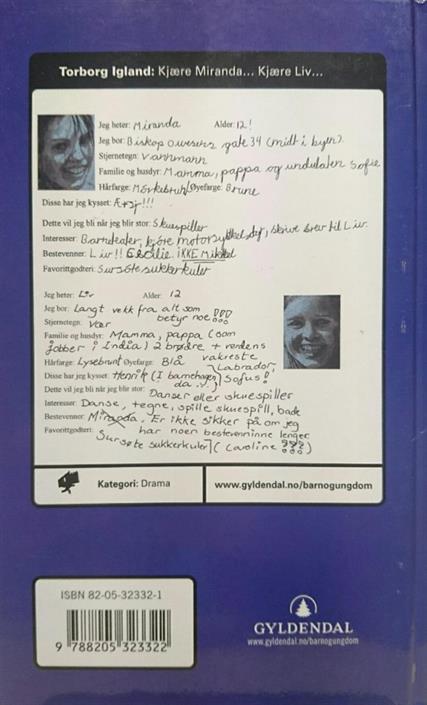 Torborg Igland: Kjære Miranda... Kjære Liv...
Jeg heter: Miranda Alder: 12!
Jeg bor: Biskop Owesens gate 34 (midt i byen).
Stjernetegn: Vannmann
Familie og husdyr: Mamma, pappa og undulaten Sofie
Hårfarge: Mørkebrun Øyefarge: Brune
Disse har jeg kysset: Æsj!!!
Dette vil jeg bli når jeg blir stor: Skuespiller
Interesser: Barneteater, kjøre motorsykkel, skrive brev til Liv.
Bestevenner: Liv!! Cecilie. IKKE Mikkel
Favorittgodteri: Sursøte sukkerkuler
Jeg heter: Liv Alder: 12
Jeg bor: Langt vekk fra alt som
betyr noe!!!
Stjernetegn: Vær
Familie og husdyr: Mamma, pappa (som
jobber i India) 2 brødre + verdens
vakreste
Labrador,
Sofus!
Hårfarge: Lysebrunt Øyefarge: Blå
Disse har jeg kysset: Henrik (I barnehagen
da...)
Dette vil jeg bli når jeg blir stor: Danser eller skuespiller
Interesser: Danse, tegne, spille skuespill, bade
Bestevenner: Miranda. Er ikke sikker på om jeg
har noen bestevenninne lenger.
(Caroline???)
Favorittgodteri: Sursøte sukkerkuler
Kategori: Drama
www.gyldendal.no/barnogungdom
ISBN 82-05-32332-1
9 788205 323322
GYLDENDAL
www.gyldendal.no/barnogungdom